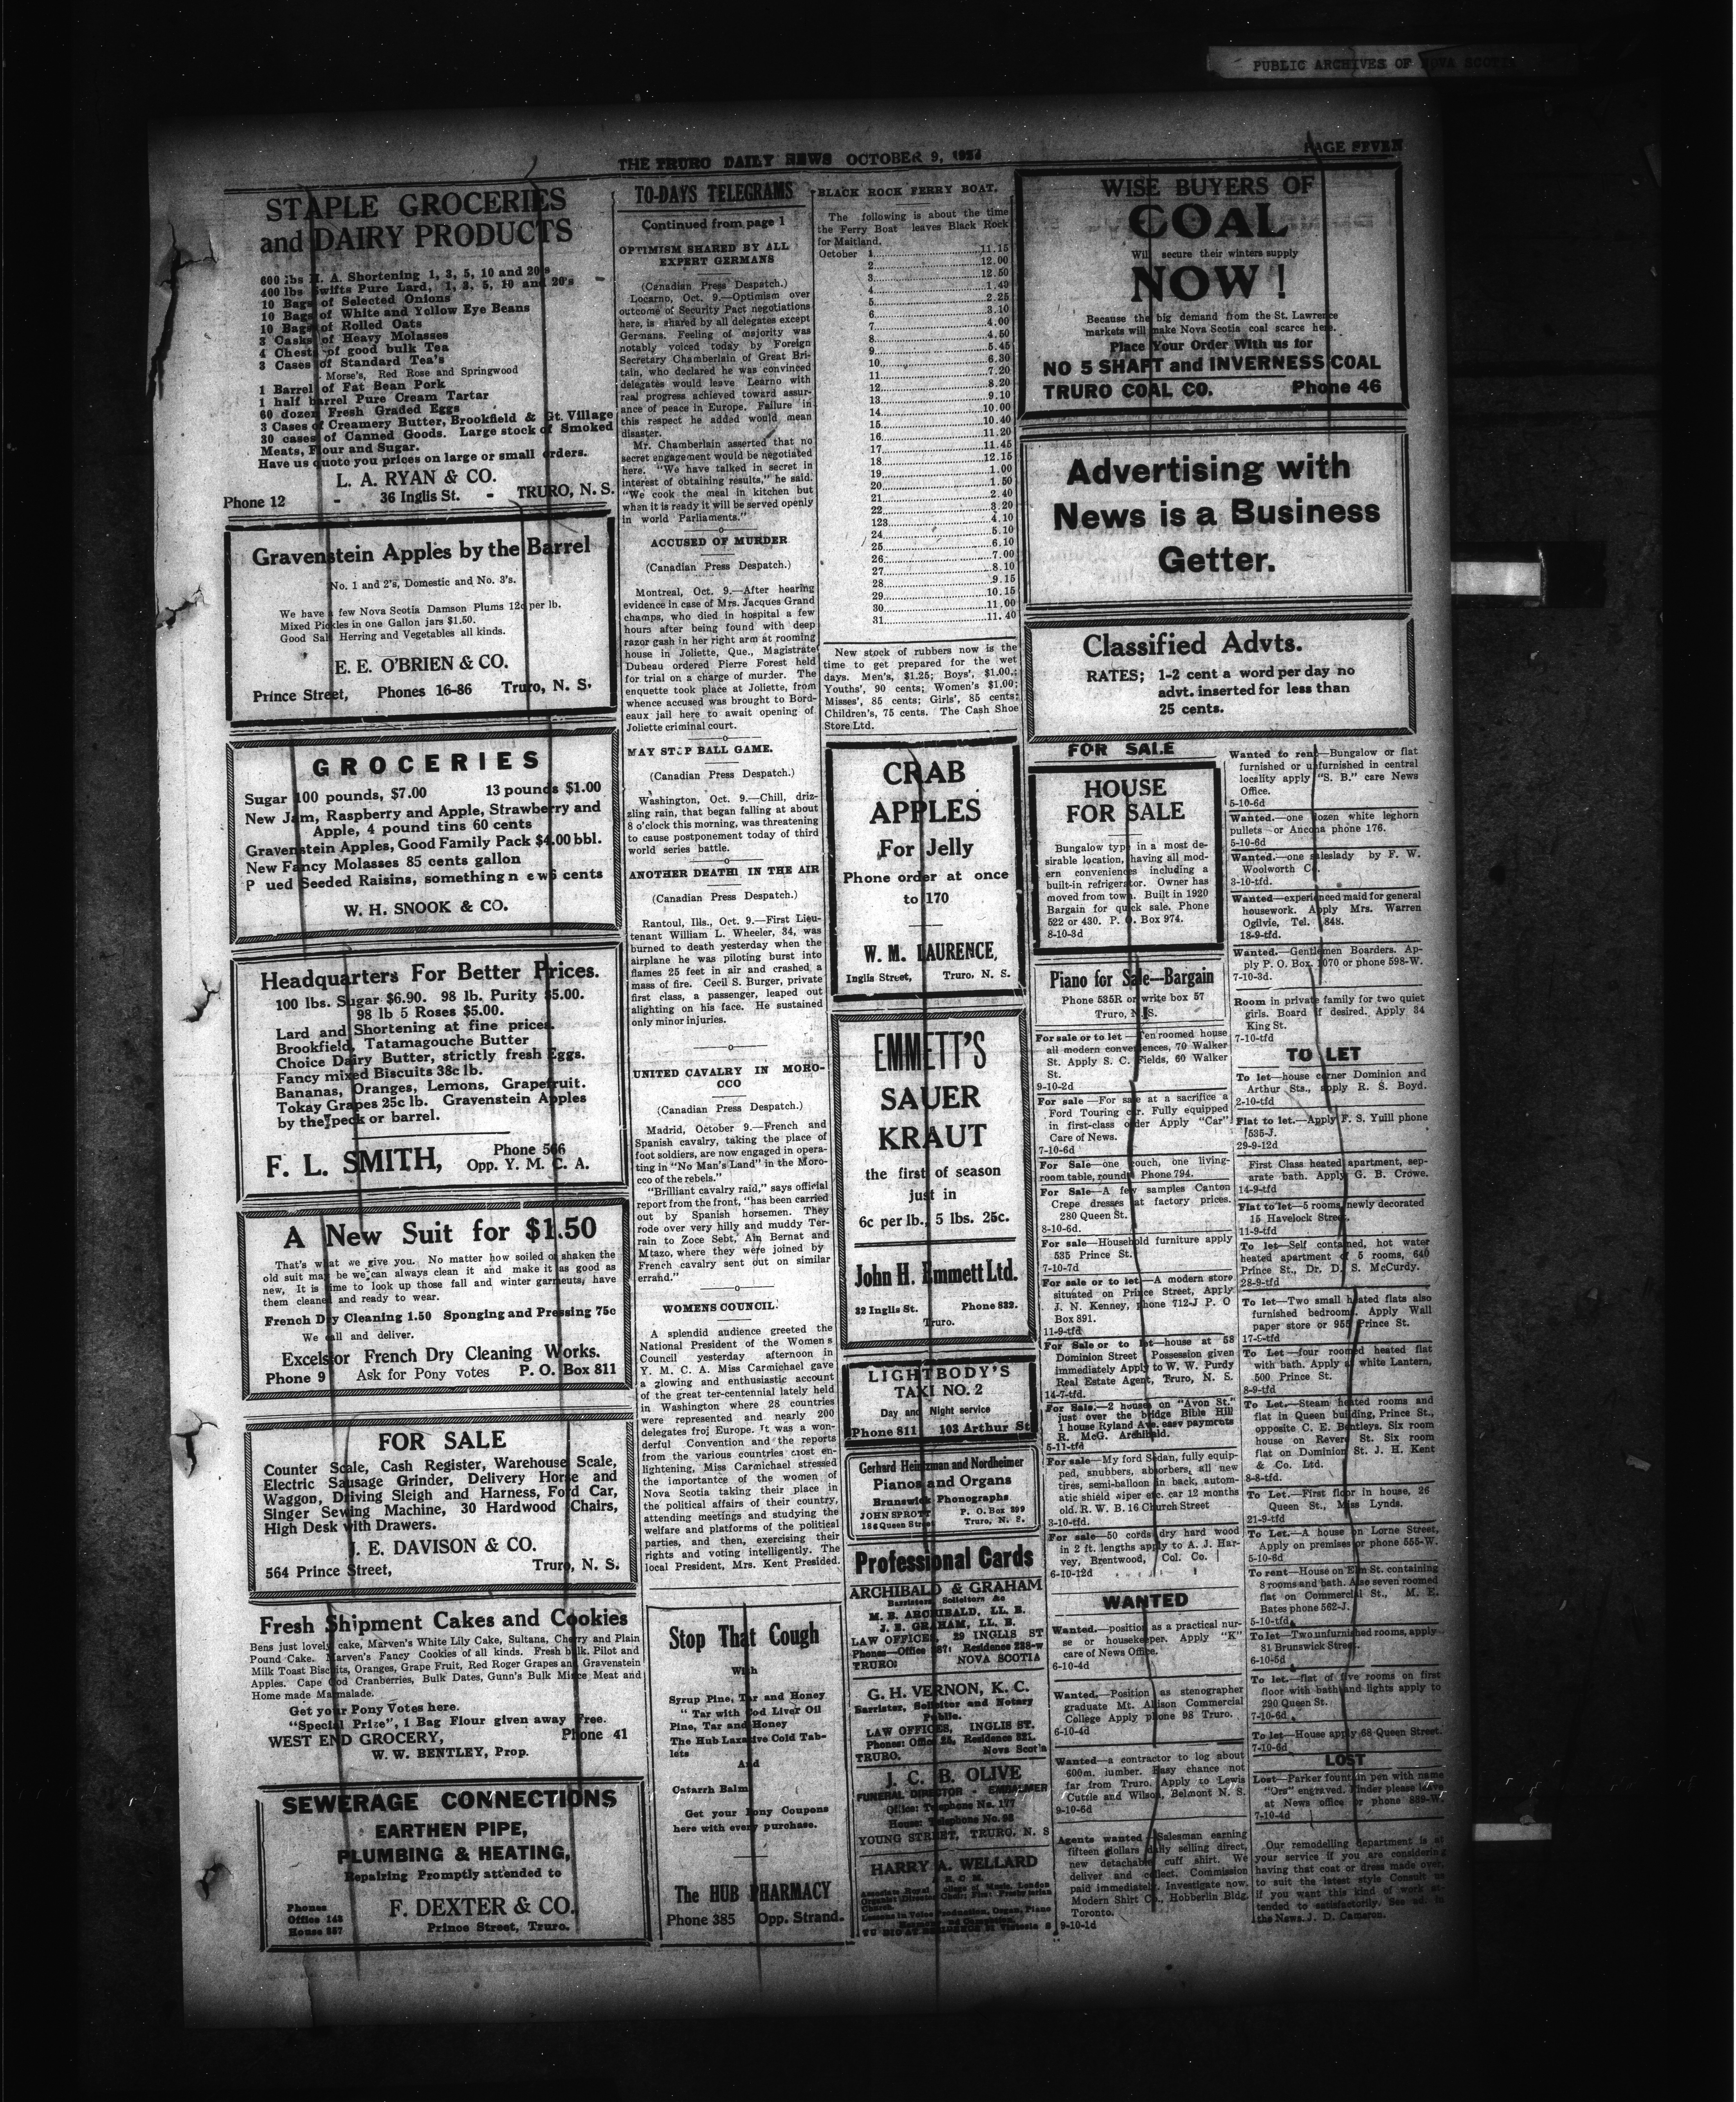 PUBLIC ARCHIVES OF NOVA SCOTIA
THE TRURO DAILY NEWS OCTOBER 9,
PAGE
STAPLE GROCERIES
and DAIRY PRODUCTS
600 lbs H. A. Shortening 1, 3, 5, 10 and 20's
400 lbs Swifts Pure Lard, 1, 3, 5, 10 and 20's
10 Bags of Selected Onions
10 Bags of White and Yellow Eye Beans
10 Bags of Rolled Oats
3 Casks of Heavy Molasses
4 Chests of good bulk Tea
3 Cases of Standard Tea's
Morse's, Red Rose and Springwood
1 Barrel of Fat Bean Pork
1 half barrel Pure Cream Tartar
60 dozen Fresh Graded Eggs
3 Cases of Creamery Butter, Brookfield & Gt. Village
30 cases of Canned Goods. Large stock of Smoked
Meats, Flour and Sugar.
Have us quote you prices on large or small orders.
L. A. RYAN & CO.
Phone 12 - 36 Inglis St. - TRURO, N. S.
Gravenstein Apples by the Barrel
No. 1 and 2's, Domestic and No. 3's.
We have a few Nova Scotia Damson Plums 12c per lb.
Mixed Pickles in one Gallon jars $1.50.
Good Salt Herring and Vegetables all kinds.
E. E. O'BRIEN & CO.
Prince Street, Phones 16-86 Truro, N. S.
GROCERIES
Sugar 100 pounds, $7.00 13 pounds $1.00
New Jam, Raspberry and Apple, Strawberry and
Apple, 4 pound tins 60 cents
Gravenstein Apples, Good Family Pack $4.00 bbl.
New Fancy Molasses 85 cents gallon
P ued Seeded Raisins, something n e w 5 cents
W. H. SNOOK & CO.
Headquarters For Better Prices.
100 lbs. Sugar $6.90. 98 lb. Purity $5.00.
98 lb 5 Roses $5.00.
Lard and Shortening at fine prices.
Brookfield, Tatamagouche Butter
Choice Dairy Butter, strictly fresh Eggs.
Fancy mixed Biscuits 38c lb.
Bananas, Oranges, Lemons, Grapefruit.
Tokay Grapes 25c lb. Gravenstein Apples
by the peck or barrel.
F. L. SMITH, Phone 566
Opp. Y. M. C. A.
A New Suit for $1.50
That's what we give you. No matter how soiled or shaken the
old suit may be we can always clean it and make it as good as
new, It is time to look up those fall and winter garments, have
them cleaned and ready to wear.
French Dry Cleaning 1.50 Sponging and Pressing 75c
We call and deliver.
Excelsior French Dry Cleaning Works.
Phone 9 Ask for Pony votes P. O. Box 811
FOR SALE
Counter Scale, Cash Register, Warehouse Scale,
Electric Sausage Grinder, Delivery Horse and
Waggon, Driving Sleigh and Harness, Ford Car,
Singer Sewing Machine, 30 Hardwood Chairs,
High Desk with Drawers.
J. E. DAVISON & CO.
564 Prince Street, Truro, N. S.
Fresh Shipment Cakes and Cookies
Bens just lovely cake, Marven's White Lily Cake, Sultana, Cherry and Plain
Pound Cake. Marven's Fancy Cookies of all kinds. Fresh bulk. Pilot and
Milk Toast Biscuits, Oranges, Grape Fruit, Red Roger Grapes and Gravenstein
Apples. Cape Cod Cranberries, Bulk Dates, Gunn's Bulk Mince Meat and
Home made Marmalade.
Get your Pony Votes here.
"Special Prize", 1 Bag Flour given away Free.
WEST END GROCERY, Phone 41
W. W. BENTLEY, Prop.
SEWERAGE CONNECTIONS
EARTHEN PIPE,
PLUMBING & HEATING,
Repairing Promptly attended to
Phones
Office 143
House 357
F. DEXTER & CO.
Prince Street, Truro.
TO-DAYS TELEGRAMS
Continued from page 1
OPTIMISM SHARED BY ALL
EXPERT GERMANS
(Canadian Press Despatch.)
Locarno, Oct. 9.—Optimism over
outcome of Security Pact negotiations
here, is shared by all delegates except
Germans. Feeling of majority was
notably voiced today by Foreign
Secretary Chamberlain of Great Bri-
tain, who declared he was convinced
delegates would leave Learno with
real progress achieved toward assur-
ance of peace in Europe. Failure in
this respect he added would mean
disaster.
Mr. Chamberlain asserted that no
secret engagement would be negotiated
here. "We have talked in secret in
interest of obtaining results," he said.
"We cook the meal in kitchen but
when it is ready it will be served openly
in world Parliaments."
ACCUSED OF MURDER
(Canadian Press Despatch.)
Montreal, Oct. 9.—After hearing
evidence in case of Mrs. Jacques Grand
champs, who died in hospital a few
hours after being found with deep
razor gash in her right arm at rooming
house in Joliette, Que., Magistrate
Dubeau ordered Pierre Forest held
for trial on a charge of murder. The
enquette took place at Joliette, from
whence accused was brought to Bord-
eaux jail here to await opening of
Joliette criminal court.
MAY STOP BALL GAME.
(Canadian Press Despatch.)
Washington, Oct. 9.—Chill, driz-
zling rain, that began falling at about
8 o'clock this morning, was threatening
to cause postponement today of third
world series battle.
ANOTHER DEATH IN THE AIR
(Canadian Press Despatch.)
Rantoul, Ills., Oct. 9.—First Lieu-
tenant William L. Wheeler, 34, was
burned to death yesterday when the
airplane he was piloting burst into
flames 25 feet in air and crashed a
mass of fire. Cecil S. Burger, private
first class, a passenger, leaped out
alighting on his face. He sustained
only minor injuries.
UNITED CAVALRY IN MORO-
CCO
(Canadian Press Despatch.)
Madrid, October 9.—French and
Spanish cavalry, taking the place of
foot soldiers, are now engaged in opera-
ting in "No Man's Land" in the Moro-
cco of the rebels."
"Brilliant cavalry raid," says official
report from the front, "has been carried
out by Spanish horsemen. They
rode over very hilly and muddy Ter-
rain to Zoce Sebt, Ain Bernat and
Mtazo, where they were joined by
French cavalry sent out on similar
errand."
WOMENS COUNCIL.
A splendid audience greeted the
National President of the Womens
Council yesterday afternoon in
Y. M. C. A. Miss Carmichael gave
a glowing and enthusiastic account
of the great ter-centennial lately held
in Washington where 28 countries
were represented and nearly 200
delegates froj Europe. It was a won-
derful Convention and the reports
from the various countries most en-
lightening, Miss Carmichael stressed
the importantce of the women of
Nova Scotia taking their place in
the political affairs of their country,
attending meetings and studying the
welfare and platforms of the political
parties, and then, exercising their
rights and voting intelligently. The
local President, Mrs. Kent Presided.
Stop That Cough
With
Syrup Pine, Tar and Honey
" Tar with Cod Liver Oil
Pine, Tar and Honey
The Hub Laxative Cold Tab-
lets
And
Catarrh Balm
Get your Pony Coupons
here with every purchase.
The HUB PHARMACY
Phone 385 Opp. Strand.
BLACK ROCK FERRY BOAT.
The following is about the time
the Ferry Boat leaves Black Rock
for Maitland.
October 1 11.15
2 12.00
3 12.50
4 1.40
5 2.25
6 3.10
7 4.00
8 4.50
9 5.45
10 6.30
11 7.20
12 8.20
13 9.10
14 10.00
15 10.40
16 11.20
17 11.45
18 12.15
19 1.00
20 1.50
21 2.40
22 3.20
123 4.10
24 5.10
25 6.10
26 7.00
27 8.10
28 9.15
29 10.15
30 11.00
31 11.40
New stock of rubbers now is the
time to get prepared for the wet
days. Men's, $1.25; Boys', $1.00.;
Youths', 90 cents; Women's $1.00;
Misses', 85 cents; Girls', 85 cents;
Children's, 75 cents. The Cash Shoe
Store Ltd.
CRAB
APPLES
For Jelly
Phone order at once
to 170
W. M. LAURENCE,
Inglis Street, Truro, N. S.
EMMETT'S
SAUER
KRAUT
the first of season
just in
6c per lb., 5 lbs. 25c.
John H. Emmett Ltd.
32 Inglis St. Phone 832.
Truro.
LIGHTBODY'S
TAXI NO. 2
Day and Night service
Phone 811 103 Arthur St
Gerhard Heintzman and Nordheimer
Pianos and Organs
Brunswick Phonographs
JOHN SPROTT P. O. Box 299
Queen Street Truro, N. S.
Professional Cards
ARCHIBALD & GRAHAM
Barristers, Solicitors &c
M. B. ARCHIBALD, LL. B.
J. E. GRAHAM, LL. B.
LAW OFFICES, 29 INGLIS ST
Phones—Office 367: Residence 238-w
TRURO: NOVA SCOTIA
G. H. VERNON, K. C.
Barrister, Solicitor and Notary
Public.
LAW OFFICES, INGLIS ST.
Phones: Office 25, Residence 221.
TRURO. Nova Scotia
J. C. B. OLIVE
FUNERAL DIRECTOR - EMBALMER
Office: Telephone No. 177
House: Telephone No. 98
YOUNG STREET, TRURO, N. S
HARRY A. WELLARD
WISE BUYERS OF
COAL
Will secure their winters supply
NOW!
Because the big demand from the St. Lawrence
markets will make Nova Scotia coal scarce here.
Place Your Order With us for
NO 5 SHAFT and INVERNESS COAL
TRURO COAL CO. Phone 46
Advertising with
News is a Business
Getter.
Classified Advts.
RATES; 1-2 cent a word per day no
advt. inserted for less than
25 cents.
FOR SALE
HOUSE
FOR SALE
Bungalow type in a most de-
sirable location, having all mod-
ern conveniences including a
built-in refrigerator. Owner has
moved from town. Built in 1920
Bargain for quick sale. Phone
522 or 430. P. O. Box 974.
8-10-3d
Piano for Sale—Bargain
Phone 535R or write box 57
Truro, N. S.
For sale or to let—Ten roomed house
all modern conveniences, 70 Walker
St. Apply S. C. Fields, 60 Walker
St.
9-10-2d
For sale—For sale at a sacrifice a
Ford Touring car. Fully equipped
in first-class order Apply "Car"
Care of News.
7-10-6d
For Sale—one couch, one living-
room table, round. Phone 794.
For Sale—A few samples Canton
Crepe dresses at factory prices.
280 Queen St.
8-10-6d.
For sale—Household furniture apply
535 Prince St.
7-10-7d
For sale or to let—A modern store
situated on Prince Street, Apply
J. N. Kenney, phone 712-J P. O
Box 891.
11-9-tfd
For Sale or to let—house at 58
Dominion Street Possession given
immediately Apply to W. W. Purdy
Real Estate Agent, Truro, N. S.
14-7-tfd.
For Sale.—2 houses on "Avon St."
just over the bridge Bible Hill
1 house Ryland Ave. easy payments
R. McG. Archibald.
5-11-tfd
For sale—My ford Sedan, fully equip-
ped, snubbers, absorbers, all new
tires, semi-balloon in back, autom-
atic shield wiper etc. car 12 months
old. R. W. B. 16 Church Street
3-10-tfd.
For sale—50 cords dry hard wood
in 2 ft. lengths apply to A. J. Har-
vey, Brentwood, Col. Co.
6-10-12d
WANTED
Wanted.—position as a practical nur-
se or housekeeper. Apply "K"
care of News Office.
6-10-4d
Wanted.—Position as stenographer
graduate Mt. Allison Commercial
College Apply phone 98 Truro.
6-10-4d
Wanted—a contractor to log about
600m. lumber. Easy chance not
far from Truro. Apply to Lewis
Cuttle and Wilson, Belmont N. S.
9-10-6d
Agents wanted—Salesman earning
fifteen dollars daily selling direct,
new detachable cuff shirt. We
deliver and collect. Commission
paid immediately. Investigate now.
Modern Shirt Co., Hobberlin Bldg.
Toronto.
9-10-1d
Wanted to rent—Bungalow or flat
furnished or unfurnished in central
locality apply "S. B." care News
Office.
5-10-6d
Wanted.—one dozen white leghorn
pullets or Ancona phone 176.
5-10-6d
Wanted.—one saleslady by F. W.
Woolworth Co.
3-10-tfd.
Wanted—experienced maid for general
housework. Apply Mrs. Warren
Ogilvie, Tel. 848.
18-9-tfd
Wanted.—Gentlemen Boarders. Ap-
ply P. O. Box. 1070 or phone 598-W.
7-10-3d.
Room in private family for two quiet
girls. Board if desired. Apply 34
King St.
7-10-tfd
TO LET
To let—house corner Dominion and
Arthur Sts., apply R. S. Boyd.
2-10-tfd
Flat to let.—Apply F. S. Yuill phone
535-J.
29-9-12d
First Class heated apartment, sep-
arate bath. Apply G. B. Crowe.
14-9-tfd
Flat to let—5 rooms newly decorated
15 Havelock Street.
11-9-tfd
To let—Self contained, hot water
heated apartment of 5 rooms, 640
Prince St., Dr. D. S. McCurdy.
28-9-tfd
To let—Two small heated flats also
furnished bedrooms. Apply Wall
paper store or 955 Prince St.
17-9-tfd
To Let—four roomed heated flat
with bath. Apply at white Lantern,
500 Prince St.
8-9-tfd
To Let.—Steam heated rooms and
flat in Queen building, Prince St.,
opposite C. E. Bentleys. Six room
house on Revere St. Six room
flat on Dominion St. J. H. Kent
& Co. Ltd.
8-8-tfd.
To Let.—First floor in house, 26
Queen St., Miss Lynds.
21-9-tfd
To Let.—A house on Lorne Street,
Apply on premises or phone 555-W.
5-10-6d
To rent—House on Elm St. containing
8 rooms and bath. Also seven roomed
flat on Commercial St., M. E.
Bates phone 562-J.
5-10-tfd
To let—Two unfurnished rooms, apply
81 Brunswick Street.
6-10-5d
To let.—flat of five rooms on first
floor with bath and lights apply to
290 Queen St.
7-10-6d
To let—House apply 68 Queen Street.
7-10-6d
LOST
Lost—Parker fountain pen with name
"Ors" engraved. Finder please leave
at News office or phone 889-W
7-10-4d
Our remodelling department is at
your service if you are considering
having that coat or dress made over
to suit the latest style Consult us
if you want this kind of work at-
tended to satisfactorily. See ad. in
the News. J. D. Cameron.